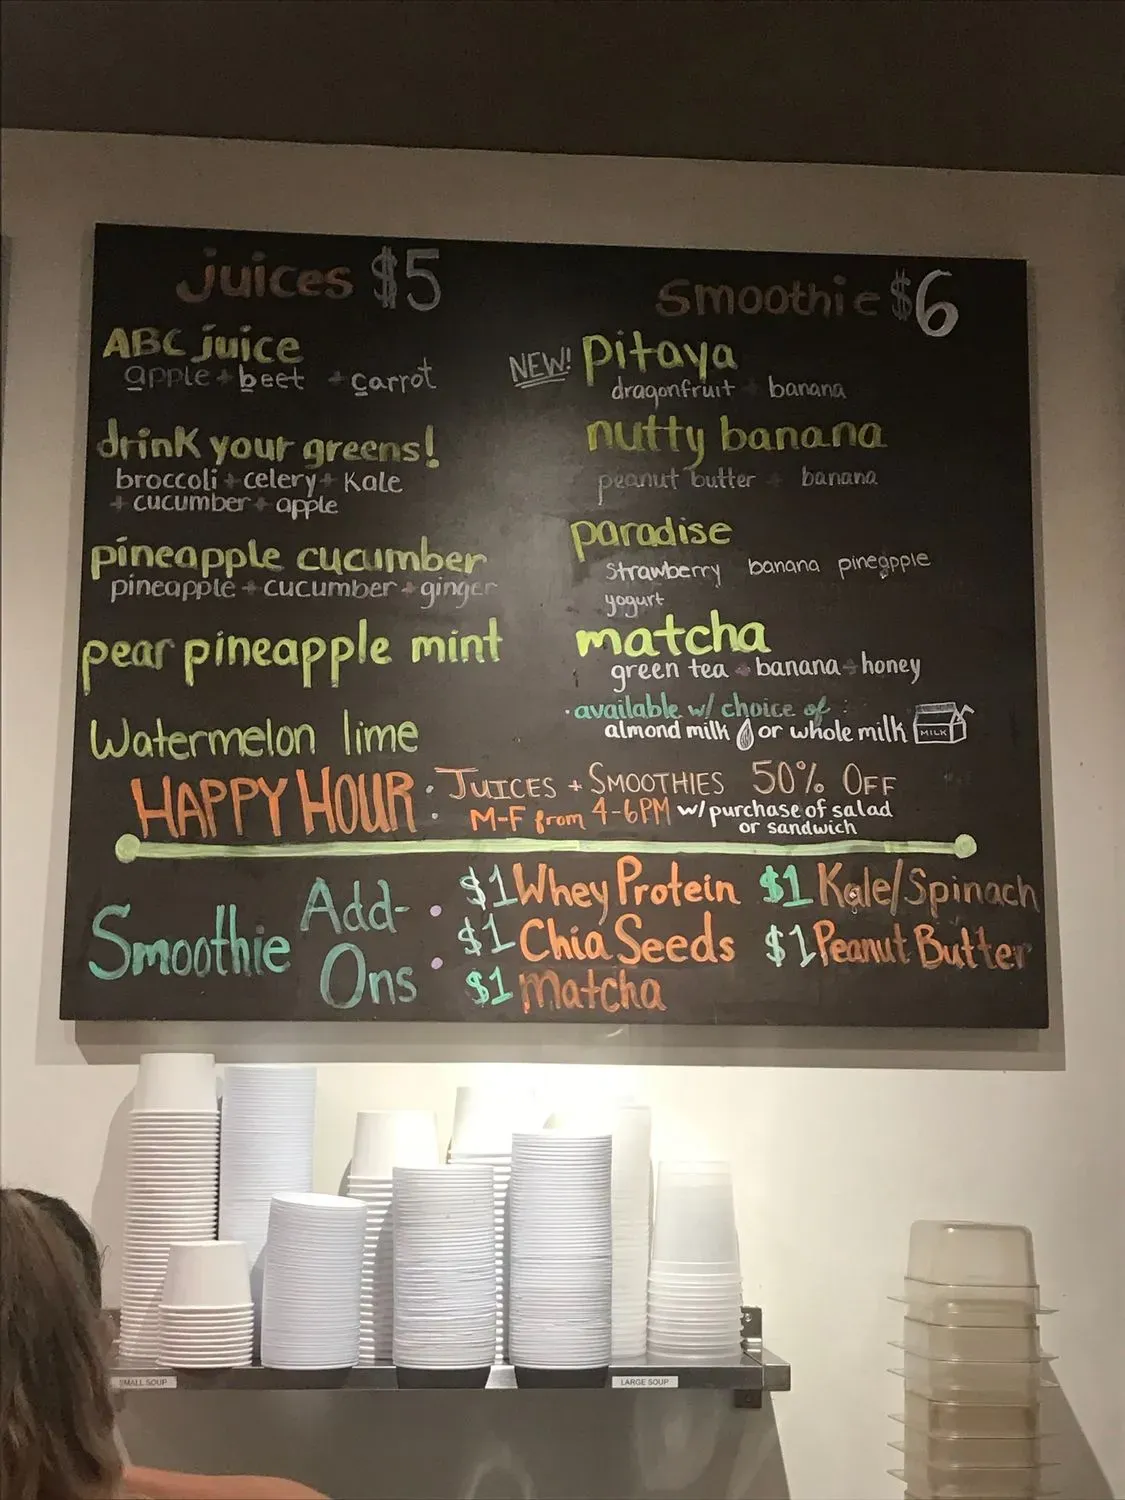 juices $5
ABC juice
apple + beet + carrot
drink your greens!
broccoli + celery + Kale
+ cucumber + apple
pineapple cucumber
pineapple + cucumber + ginger
pear pineapple mint
Watermelon lime
smoothie $6
NEW! pitaya
dragonfruit + banana
nutty banana
peanut butter + banana
paradise
strawberry banana pineapple
yogurt
matcha
green tea + banana + honey
• available w/ choice of :
almond milk or whole milk
MILK
HAPPY HOUR • JUICES + SMOOTHIES 50% OFF
• M-F from 4-6PM w/ purchase of salad
or sandwich
Smoothie Add-Ons
• $1 Whey Protein $1 Kale/Spinach
• $1 Chia Seeds $1 Peanut Butter
$1 Matcha
SMALL SOUP
LARGE SOUP